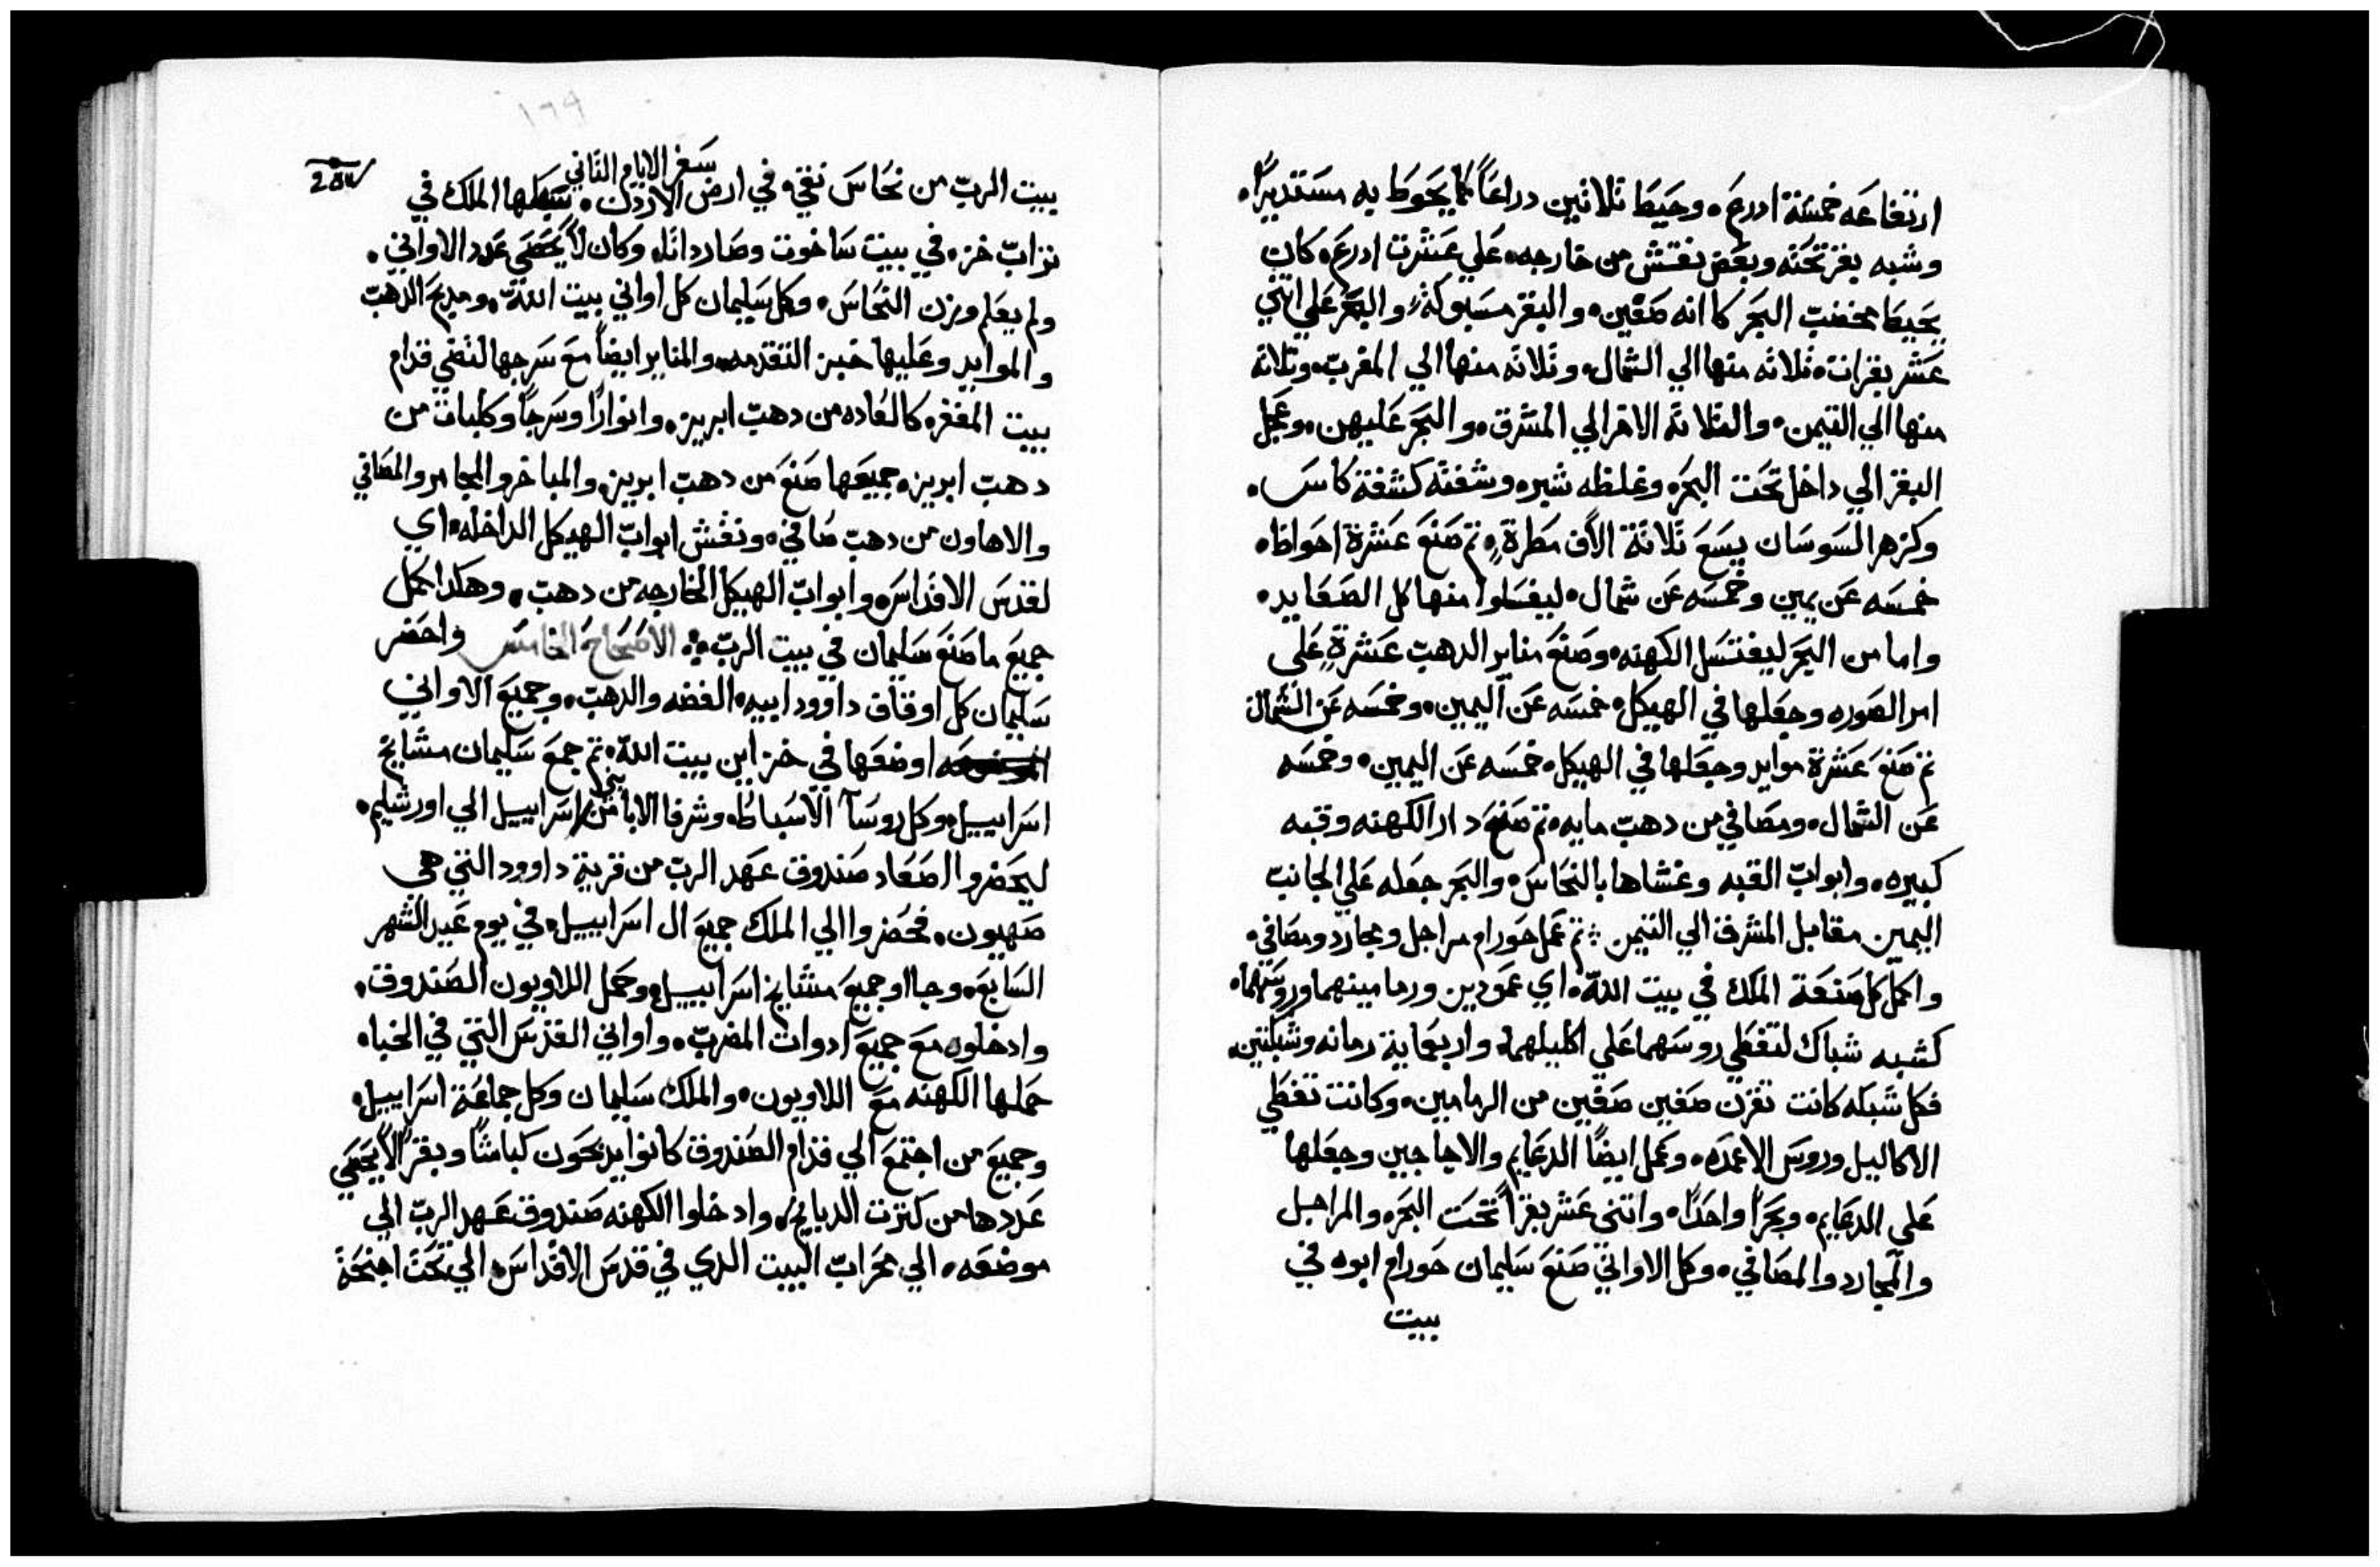 ارتفاعه خمسة ادرع. وحيط تلاتين دراعاً كما يحوط به مستديراً.
وشبه بقر تحته وبعض نقش من خارجه. علي عشرت ادرع. كان
يحيط محضت البحر كا انه صفين. والبقر مسبوكة. والبحر علي اتني
عشر بقرات. تلاته منها الي الشمال. وتلاته منها الي المغرب. وتلاته
منها الي التيمن. والتلاته الاخر الي المشرق. والبحر عليهن. وعجل
البقر الي داخل تحت البحر. وغلظه شبر. وشفته كشفة كاس.
وكزهر السوسان يسع تلاتة الاف مطرة. تم صنع عشرة احواظ.
خمسه عن يمين وخمسه عن شمال. ليغسلوا منها كل الصعايد.
واما من البحر ليغتسل الكهنه. وصنع مناير الدهب عشرةٍ علي
امر الصوره وجعلها في الهيكل. خمسه عن اليمين. وخمسه عن الشمال
تم صنع عشرة موايد وجعلها في الهيكل. خمسه عن اليمين. وخمسه
عن الشمال. ومصافي من دهب مايه. تم صنع دار الكهنه وقبه
كبيره. وابواب القبه وغشاها بالنحاس. والبحر جعله علي الجانب
اليمين مقابل المشرق الي التيمن ܀ تم عمل حورام مراجل ومجارد ومصافي.
واكمل كل صنعة الملك في بيت الله. اي عمودين ورمامينهما وروسهما.
كشبه شباك لتغطي روسهما علي اكليلهما. واربعماية رمانه وشبكتين.
فكل شبكه كانت تقرن صفين صفين من الرمامين. وكانت تغطي
الاكاليل وروس الاعمده. وعمل ايضًا الدعايم والاجاجين وجعلها
علي الدعايم. وبحرًا واحدًا. واتني عشر بقرًا تحت البحر. والمراجل
والمجارد والمصافي. وكل الاواني صنع سليمان حورام ابوه في
بيت
١٦٩
سفر الايام التاني
بيت الرب من نحاس نقي. في ارض الاردن. سبكها الملك في
تراب خز. في بيت ساخوت وصاردانا. وكان لا يحصي عدد الاواني.
ولم يعلم وزن النحاس. وكل سليمان كل اواني بيت الله. ومدبح الدهب
والموايد وعليها خبز التقدمه. والمناير ايضاً مع سرجها لتضي قدام
بيت المغفره كالعاده من دهب ابريز. وانوارًا وسرجاً وكلبات من
دهب ابريز. جميعها صنع من دهب ابريز. والمباخر والمجامر والمصافي
والاهاون من دهب صافي. ونقش ابواب الهيكل الداخله. اي
لقدس الاقداس. وابواب الهيكل الخارجه من دهب. وهكدا كمل
جميع ما صنع سليمان في بيت الرب܀ الاصحاح الخامس واحضر
سليمان كل اوقاف داوود ابيه. الفضه والدهب. وجميع الاواني
اوضعها في خزاين بيت الله. تم جمع سليمان مشايخ
اسراييل. وكل روسآ الاسباط. وشرفا الابا من بني اسراييل الي اورشليم.
ليحضروا اصعاد صندوق عهد الرب من قرية داوود التي هي
صهيون. فحضروا الي الملك جميع ال اسراييل. في يوم عيد الشهر
السابع. وجااو جميع مشايخ اسراييل. وحمل اللاويون الصندوق.
وادخلوه مع جميع ادوات المضرب. واواني القدس التي في الخبا.
حملها الكهنه مع اللاويون. والملك سليمان وكل جماعة اسراييل.
وجميع من اجتمع الي قدام الصندوق كانوا يدبحون كباشاً وبقرًا لا يحصي
عددها من كترت الدبايح. وادخلوا الكهنه صندوق عهد الرب الي
موضعه. الي محراب البيت الدي في قدس الاقداس. الي تحت اجنحة